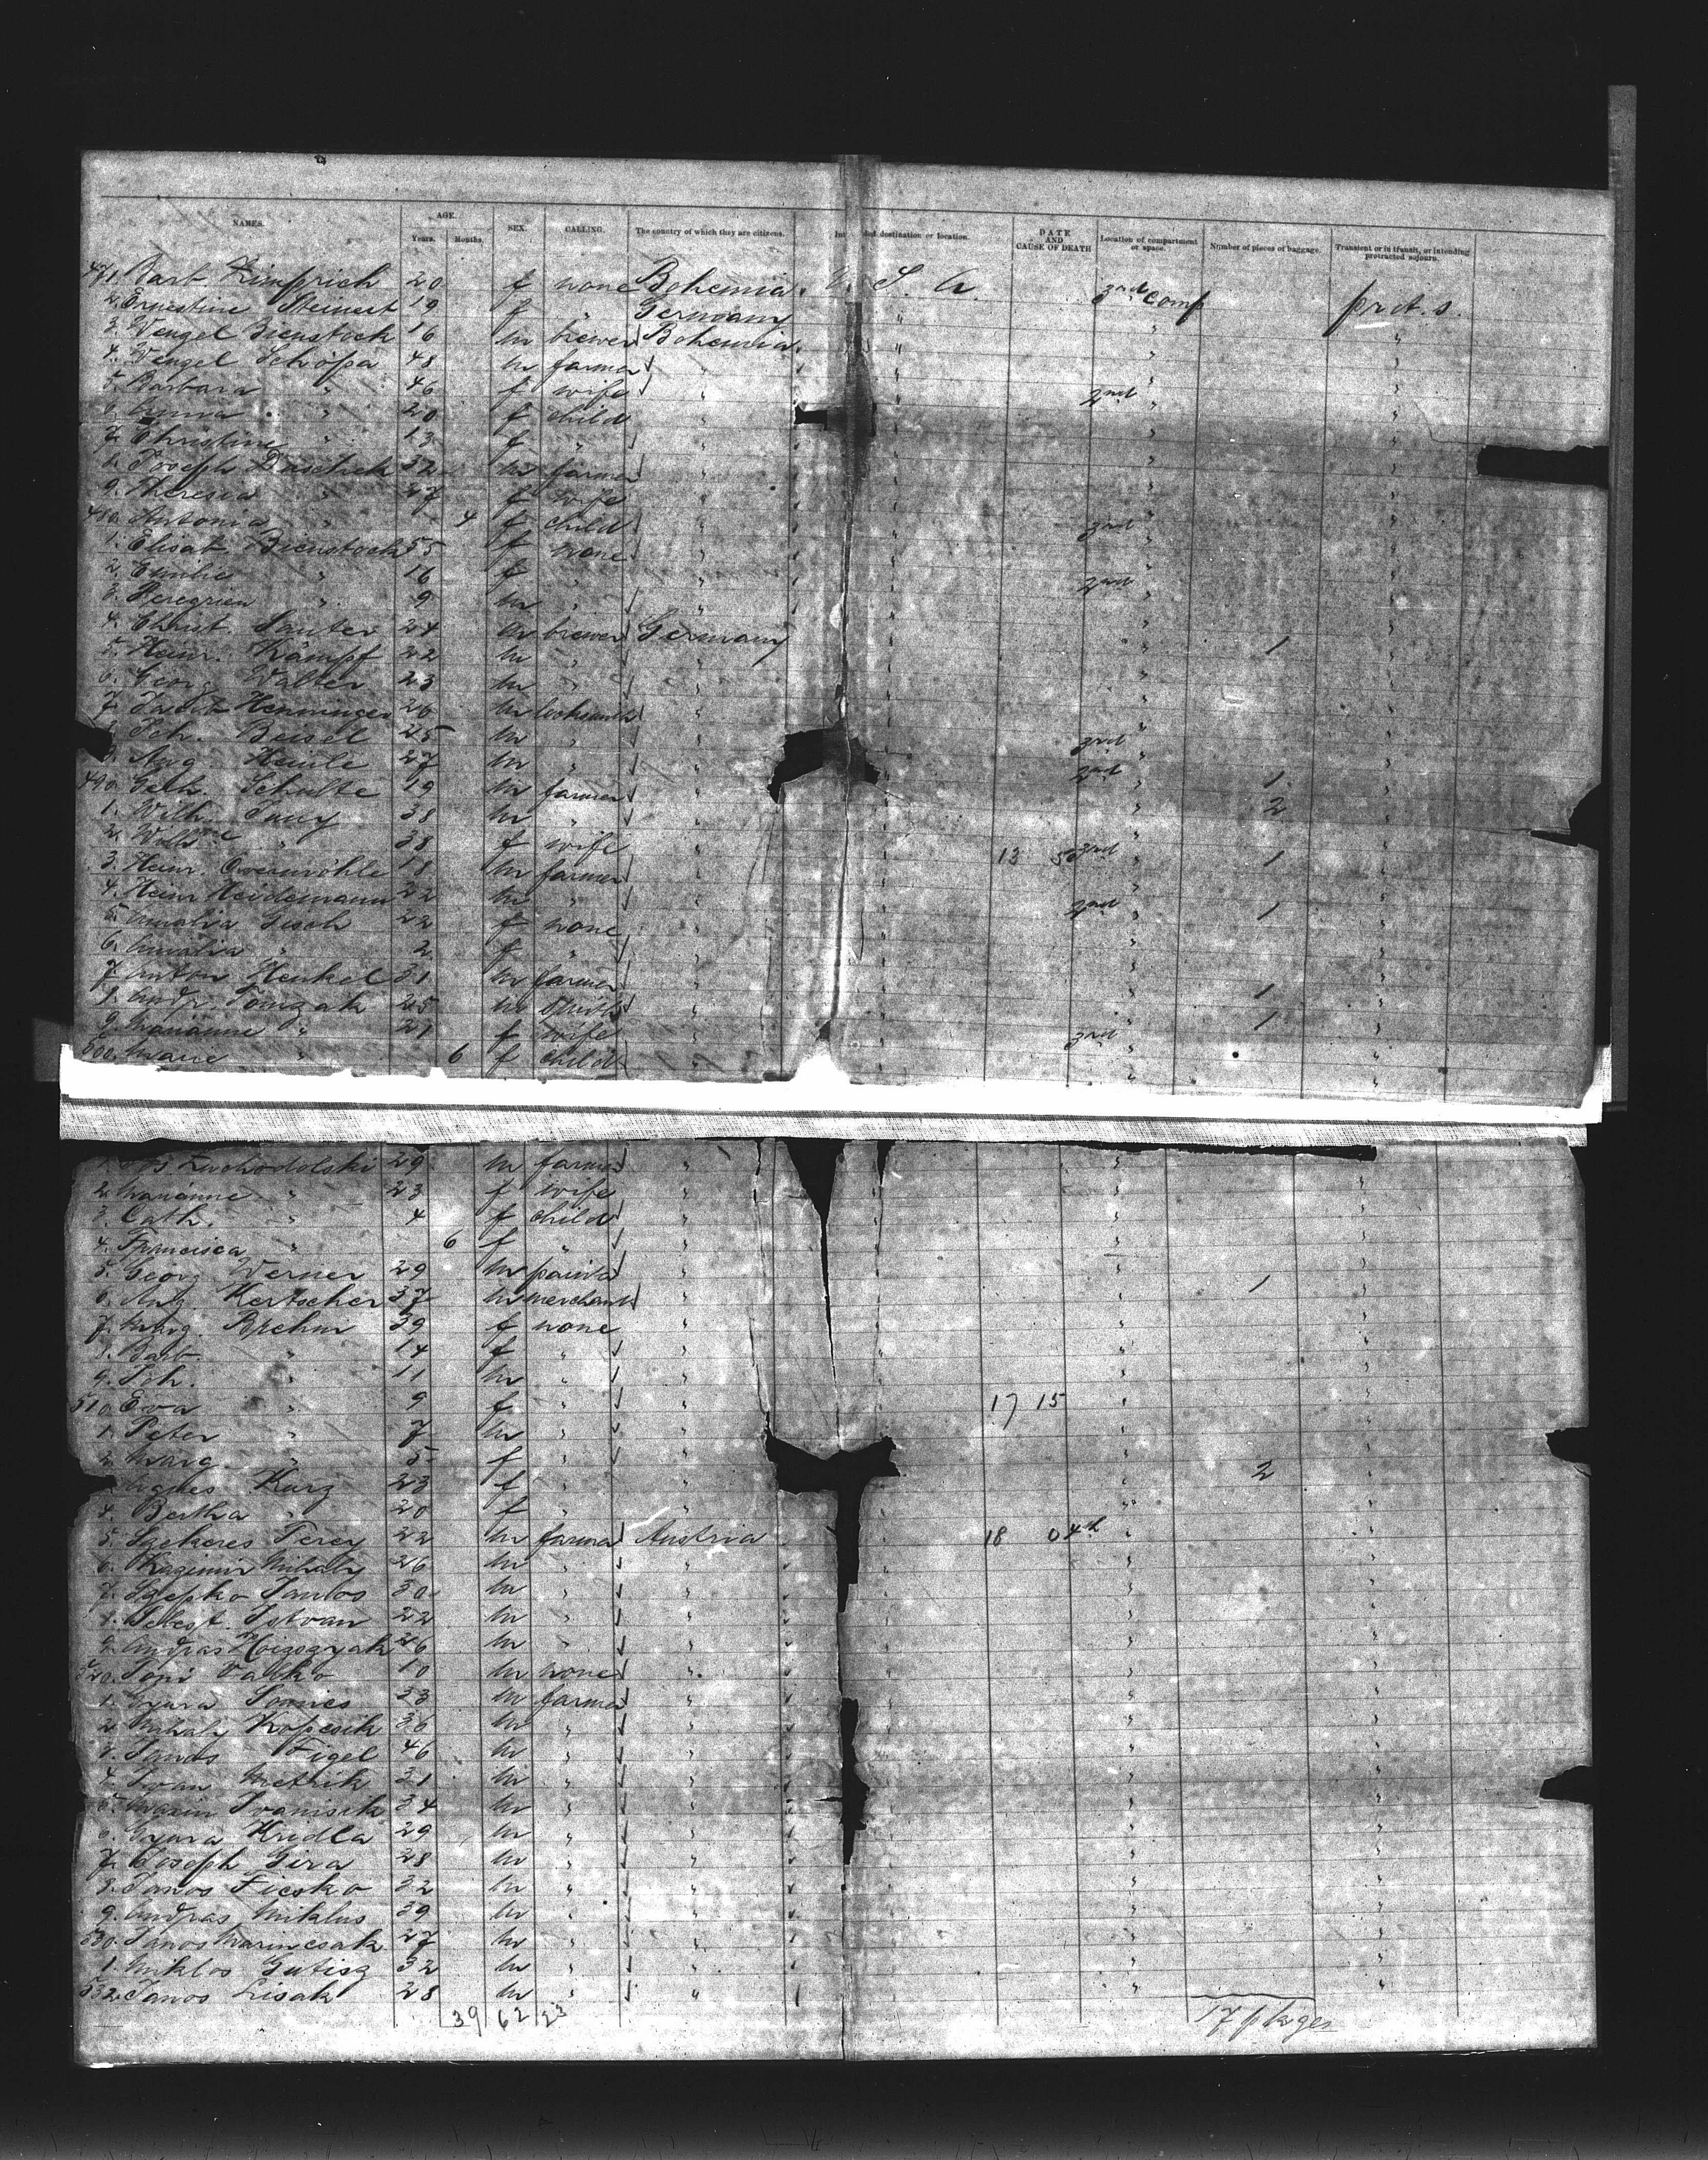 NAMES. AGE. Years. Months. SEX. CALLING. The country of which they are citizens. Intended destination or location. DATE AND CAUSE OF DEATH Location of compartment or space. Number of pieces of baggage. Transient or in transit, or intending protracted sojourn.
471 Barb 20 f none Bohemia U. S. A. 3rd comp prot. s.
2. Ernestine Steinert 19 f " Germany " "
3. Wenzel Bienstock 16 m brewer Bohemia " "
4. Wenzel 48 m farmer " "
5. Barbara " 46 f wife " 2nd "
6. Anna " 20 f child " "
7. Christine " 13 f " " "
8. Joseph 32 m farmer " "
9. Theresia " 27 f wife " "
480. Antonia " 4 f child " 3rd "
1. Elisab. Bienstock 55 f none " "
2. Emilie " 16 f " " 2nd "
3. Peregrien " 9 m " " "
4. Christ. Sauter 24 m brewer Germany " 1 "
5. Heinr. Kämpf 22 m " " "
6. Georg Walter 23 m " " "
7. Jacob Henninger 26 m locksmith " "
8. Joh. Beisel 25 m " " 3rd "
9. Aug. Heinle 27 m " " 2nd 1 "
490. Gerh. Schulte 19 m farmer " 2 "
1. Wilh. 38 m " " "
2. Wilhne " 38 f wife " 13 50 3rd 1 "
3. Heinr. 18 m farmer " "
4. Heinr Heidemann 22 m " " 2nd 1 "
5. Amalia Gisch 22 f none " "
6. Amalia " 2 f " " "
7 Anton Henkel 31 m farmer " 1 "
8. Andr. Tomzak 25 m smith " 1 "
9. Marianne " 21 f wife " 3rd "
500. Marie " 6 f child " "
Zuchodolski 29 m farmer " "
2. Marianne " 23 f wife " "
3. Cath. " 4 f child " "
4. Francisca " 6 f " " "
5. Georg Werner 29 m painter " 1 "
6. Aug. Hertscher 37 m merchant " "
7. Marg. Brehm 39 f none " "
8. Barb. " 14 f " " "
9. Joh. " 11 m " " "
510. Eva " 9 f " " 17 15 "
1. Peter " 7 m " " "
2. Marg. " 5 f " " 2 "
Agnes Kurz 23 f " "
4. Bertha " 20 f " "
5. Szekeres Terez 22 m farmer Austria 18 0 4th "
6. Kazimir Mihaly 26 m " "
7. Szepko Janos 30 m " "
8. Istvan 22 m " "
9. Andras 26 m " "
520. 10 m none " "
1. Gyura 23 m farmer " "
2. Mihaly Kopcsik 36 m " "
3. Janos Figel 46 m " "
4. Ivan 31 m " "
5. Ivanisik 34 m " "
6. Gyura Hridla 29 m " "
7. Joseph Gira 28 m " "
8. Janos Ficsko 32 m " "
9. Andras Miklus 39 m " "
530. Janos Marincsak 27 m " "
1. Miklos Gutisz 32 m " "
532. Janos Lisak 28 m " " "
39 62 23 17 pkges